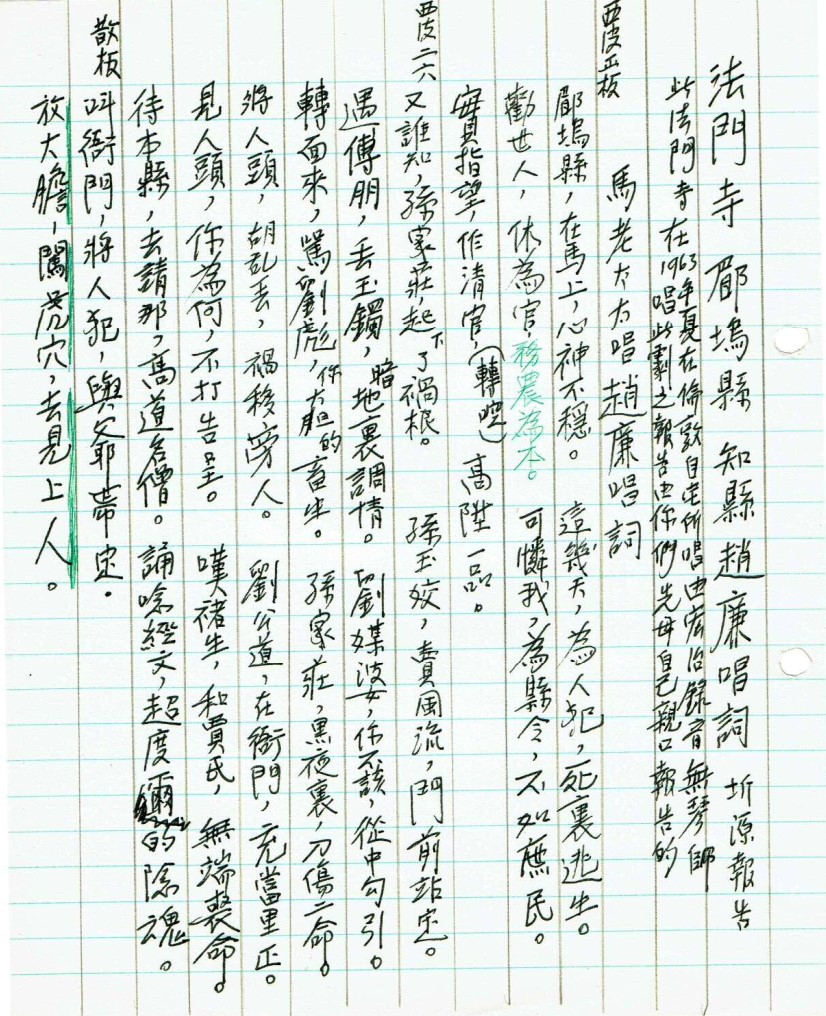 法門寺 郿塢縣 知縣趙廉唱詞 圻源報告
此法門寺在1963年夏在倫敦自宅所唱由宏治錄音無琴師
唱此劇之報告由你們先母自己親口報告的
馬老太太唱趙廉唱詞
西皮正板
郿塢縣,在馬上,心神不穩。 這幾天,為人犯,死裏逃生。
勸世人,休為官,務農為本。 可憐我,為縣令,不如庶民。
實指望,作清官,(轉腔)高陞一品。
西皮二六 又誰知,孫家莊,起下了禍根。 孫玉姣,賣風流,門前站定。
遇傅朋,丟玉鐲,暗地裏調情。 劉媒婆,你不該,從中勾引。
轉面來,罵劉彪,你大胆的畜生。 孫家莊,黑夜裏,刀傷二命。
將人頭,胡乱丟,禍移旁人。 劉公道,在衙門,充當里正。
見人頭,你為何,不打告呈。 嘆褚生,和賈氏,無端喪命。
待本縣,去請那,高道名僧。 誦唸經文,超度 的陰魂。
散板 叫衙門,將人犯,與爺帶定。
放大膽,闖虎穴,去見上人。